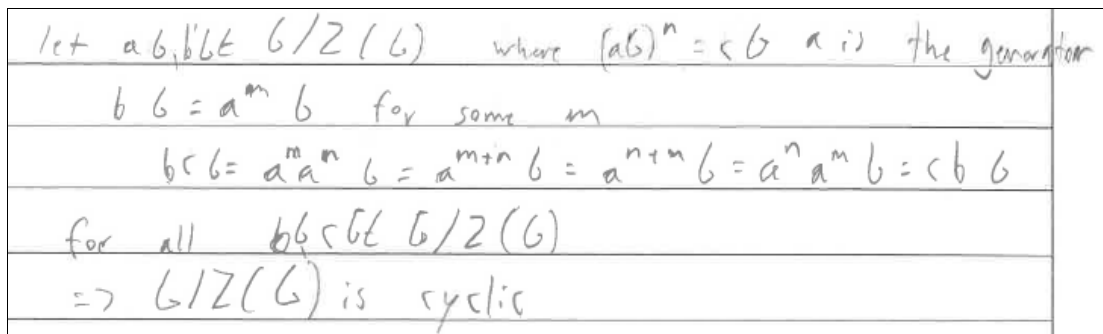 let aG, bG ∈ G/Z(G) where (aG)ⁿ = cG a is the generator
bG = aᵐ G for some m
bcG = aᵐaⁿ G = aᵐ⁺ⁿ G = aⁿ⁺ᵐ G = aⁿaᵐ G = cb G
for all bG, cG ∈ G/Z(G)
=> G/Z(G) is cyclic